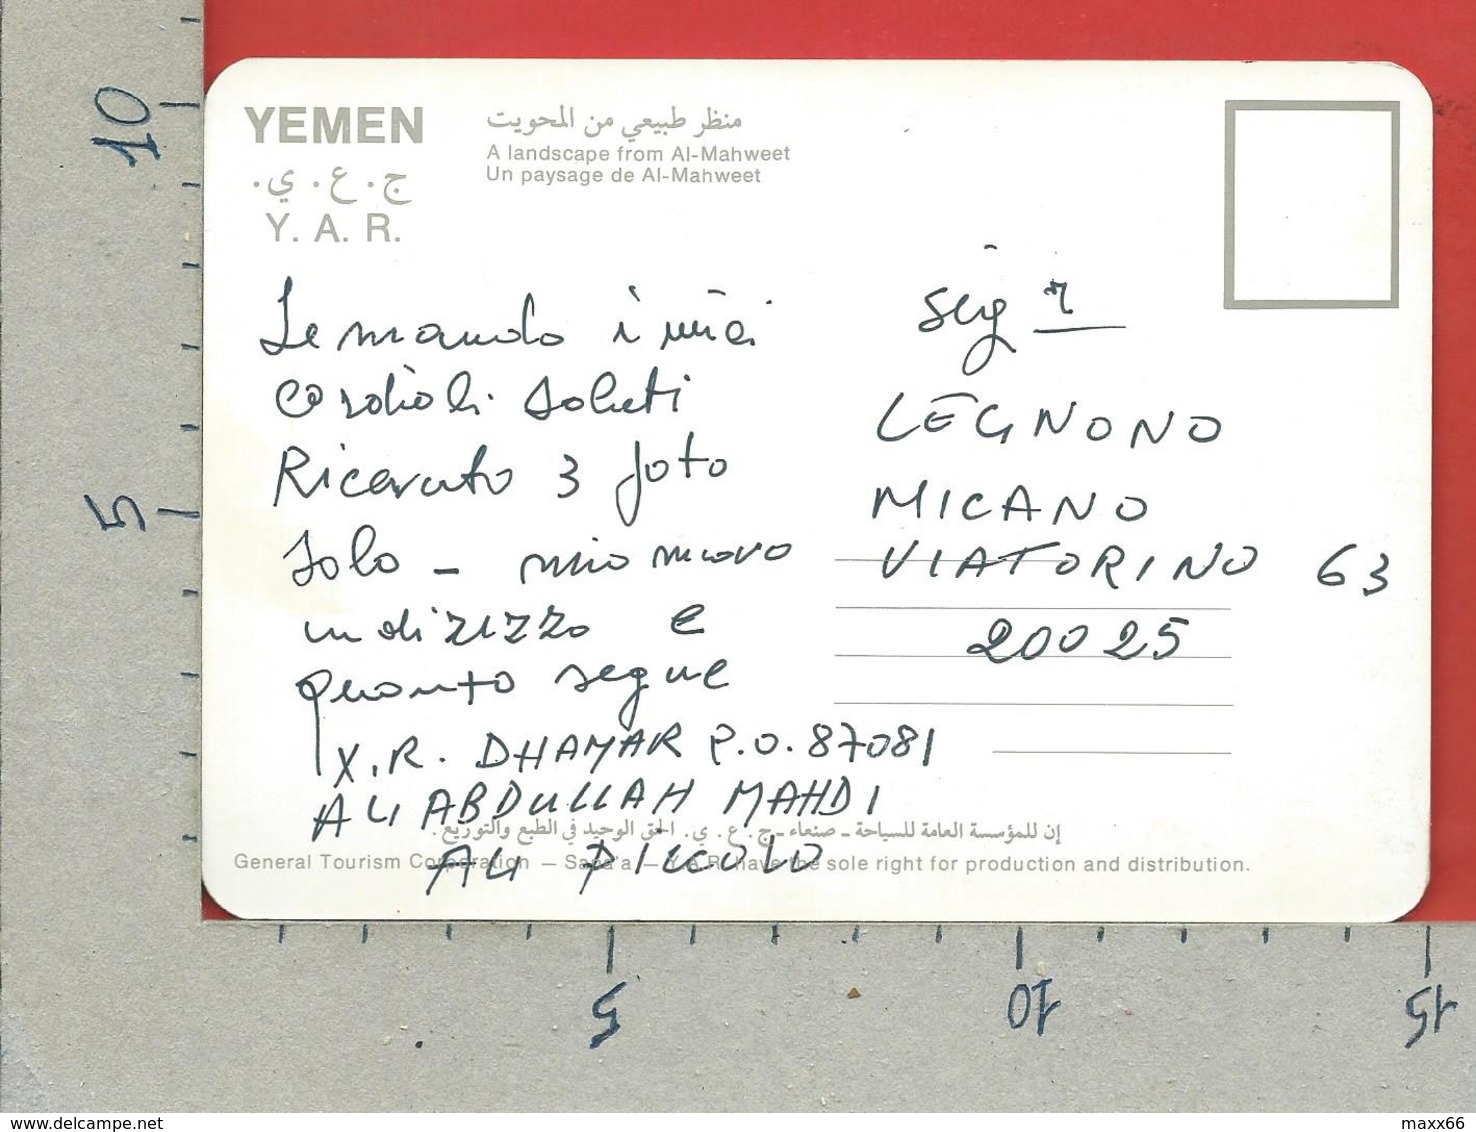 YEMEN
ج . ع . ي .
Y. A. R.
منظر طبيعي من المحويت
A landscape from Al-Mahweet
Un paysage de Al-Mahweet
Le mando i miei
cordiali saluti
Ricevuto 3 foto
solo – mio nuovo
indirizzo e
quanto segue
Y.R. DHAMAR P.O. 87081
ALI ABDULLAH MAHDI
ALI PICCOLO
Sig r
LEGNONO
MICANO
VIATORINO 63
20025
إن للمؤسسة العامة للسياحة - صنعاء - ج . ع . ي . الحق الوحيد في الطبع والتوزيع .
General Tourism Corporation — Sana'a — Y.A.R. have the sole right for production and distribution.
10
5
5
10
15
www.delcampe.net
maxx66